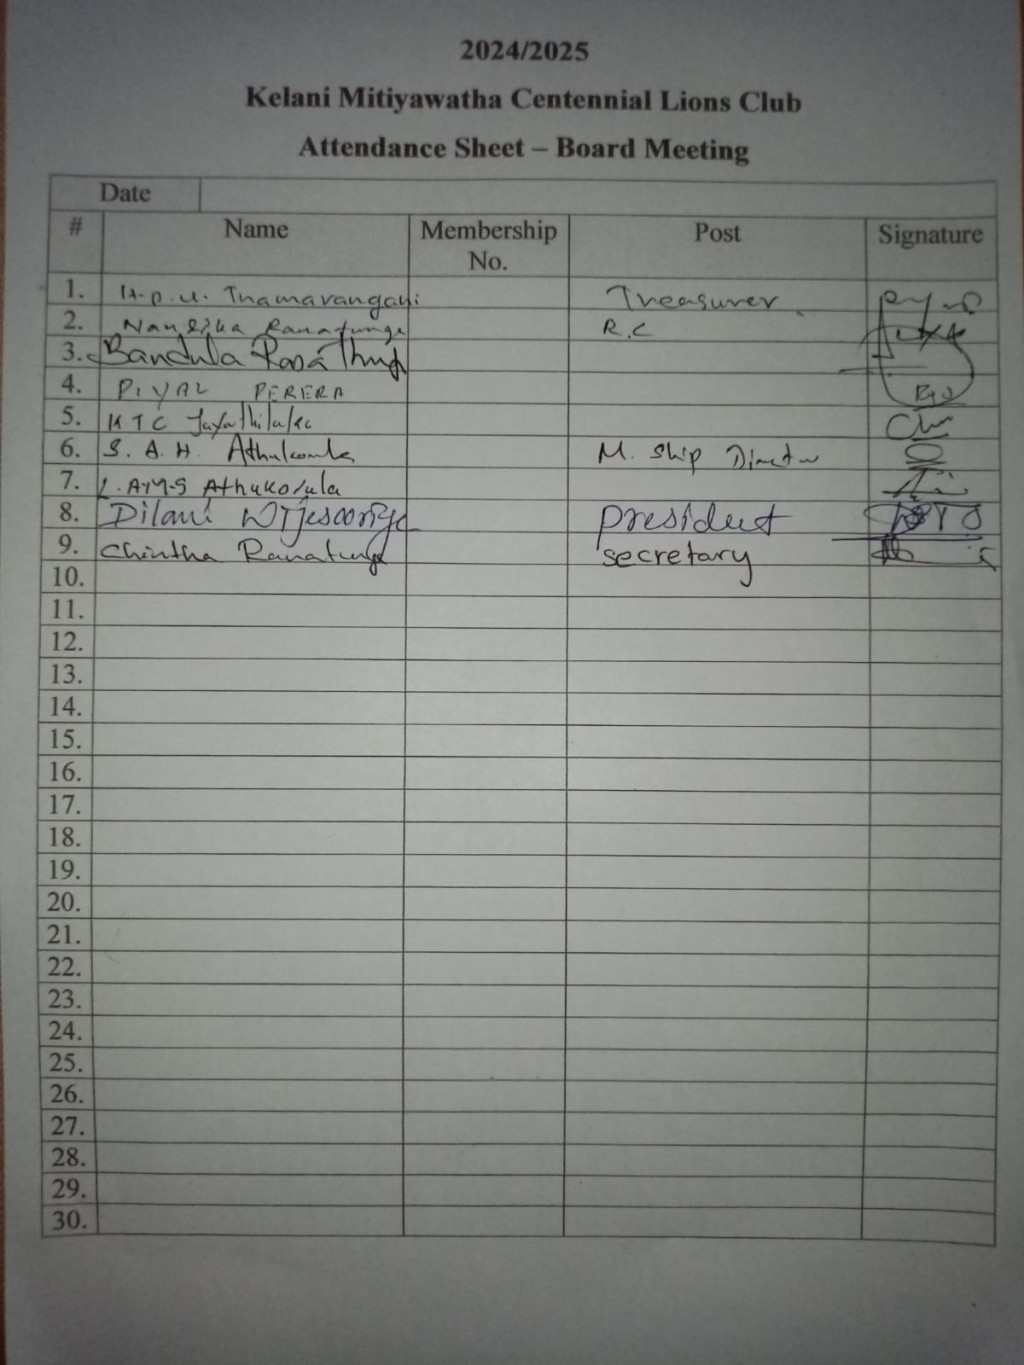 2024/2025
Kelani Mitiyawatha Centennial Lions Club
Attendance Sheet – Board Meeting
Date
# Name Membership No. Post Signature
1. H.P.U. Thamarangani Treasurer
2. Ranatunge R.C
3. Bandula
4. PIYAL PERERA
5. KTC Jayathilaka
6. S. A. H. M. Ship Director
7. Athukorala
8. Dilani Wijesooriya president
9. Chintha Ranatunge secretary
10.
11.
12.
13.
14.
15.
16.
17.
18.
19.
20.
21.
22.
23.
24.
25.
26.
27.
28.
29.
30.